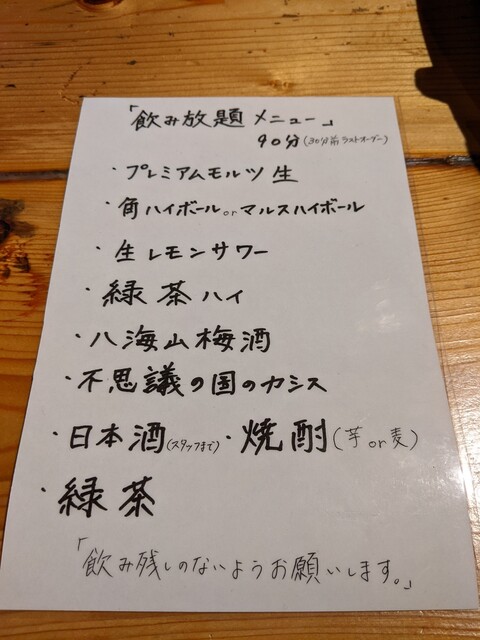 「飲み放題 メニュー」
90分(30分前ラストオーダー)
・プレミアムモルツ生
・角ハイボールorマルスハイボール
・生レモンサワー
・緑茶ハイ
・八海山梅酒
・不思議の国のカシス
・日本酒(スタッフまで)・焼酎(芋or麦)
・緑茶
「飲み残しのないようお願いします。」